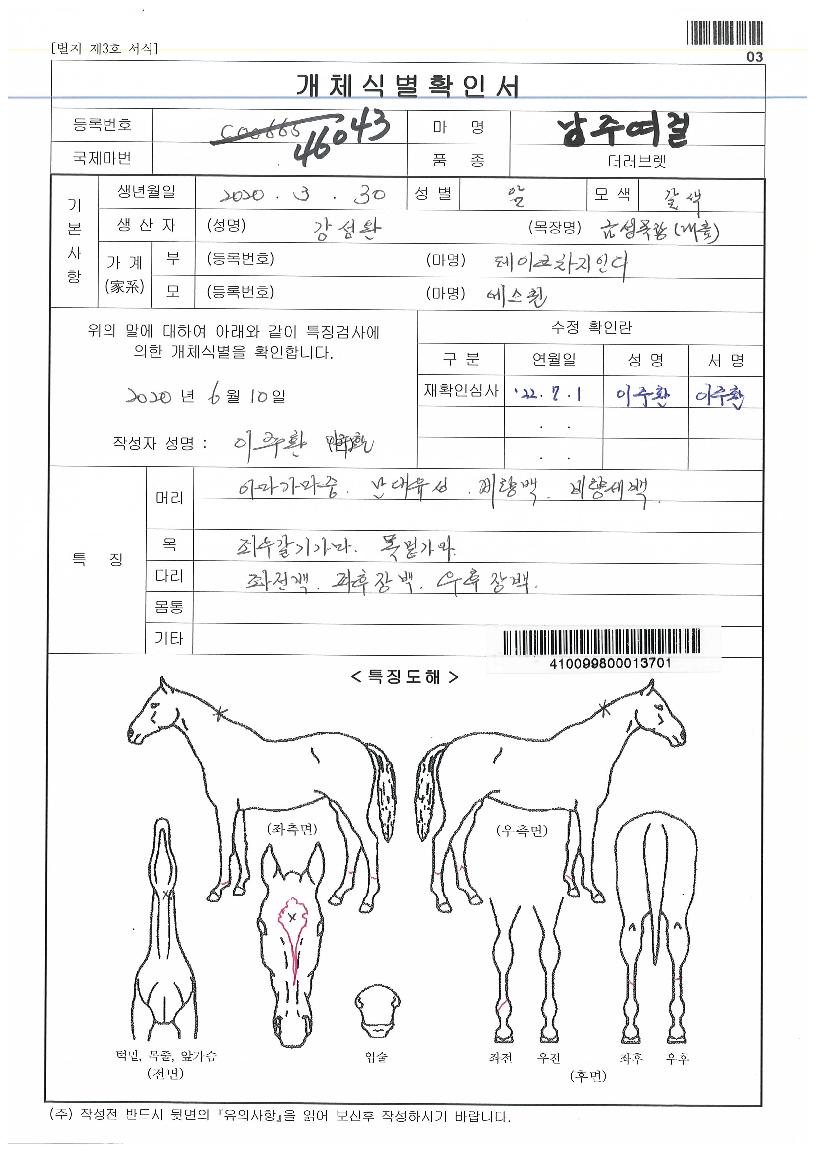 [별지 제3호 서식]
03
개체식별확인서
등록번호 46043 마 명 남주여걸
국제마번 품 종 더러브렛
기본사항
생년월일 2020 . 3 . 30 성 별 암 모 색 갈색
생 산 자 (성명) 강성완 (목장명) 금성목장
가 계 (家系) 부 (등록번호) (마명) 테이크차지인디
모 (등록번호) (마명) 에스퀸
위의 말에 대하여 아래와 같이 특징검사에
의한 개체식별을 확인합니다.
2020 년 6 월 10 일
작성자 성명 : 이주환 이주환
수정 확인란
구 분 연월일 성 명 서 명
재확인심사 '22. 7. 1 이주환 이주환
. .
. .
특 징
머리 이마가마중. 난대유성. 비량백. 비량세백.
목 좌우갈기가마. 목밑가마.
다리 좌전백. 좌후장백. 우후장백.
몸통
기타
410099800013701
< 특징도해 >
(좌측면) (우측면)
턱밑, 목줄, 앞가슴 입술 좌전 우전 좌후 우후
(전면) (후면)
(주) 작성전 반드시 뒷면의 『유의사항』을 읽어 보신후 작성하시기 바랍니다.